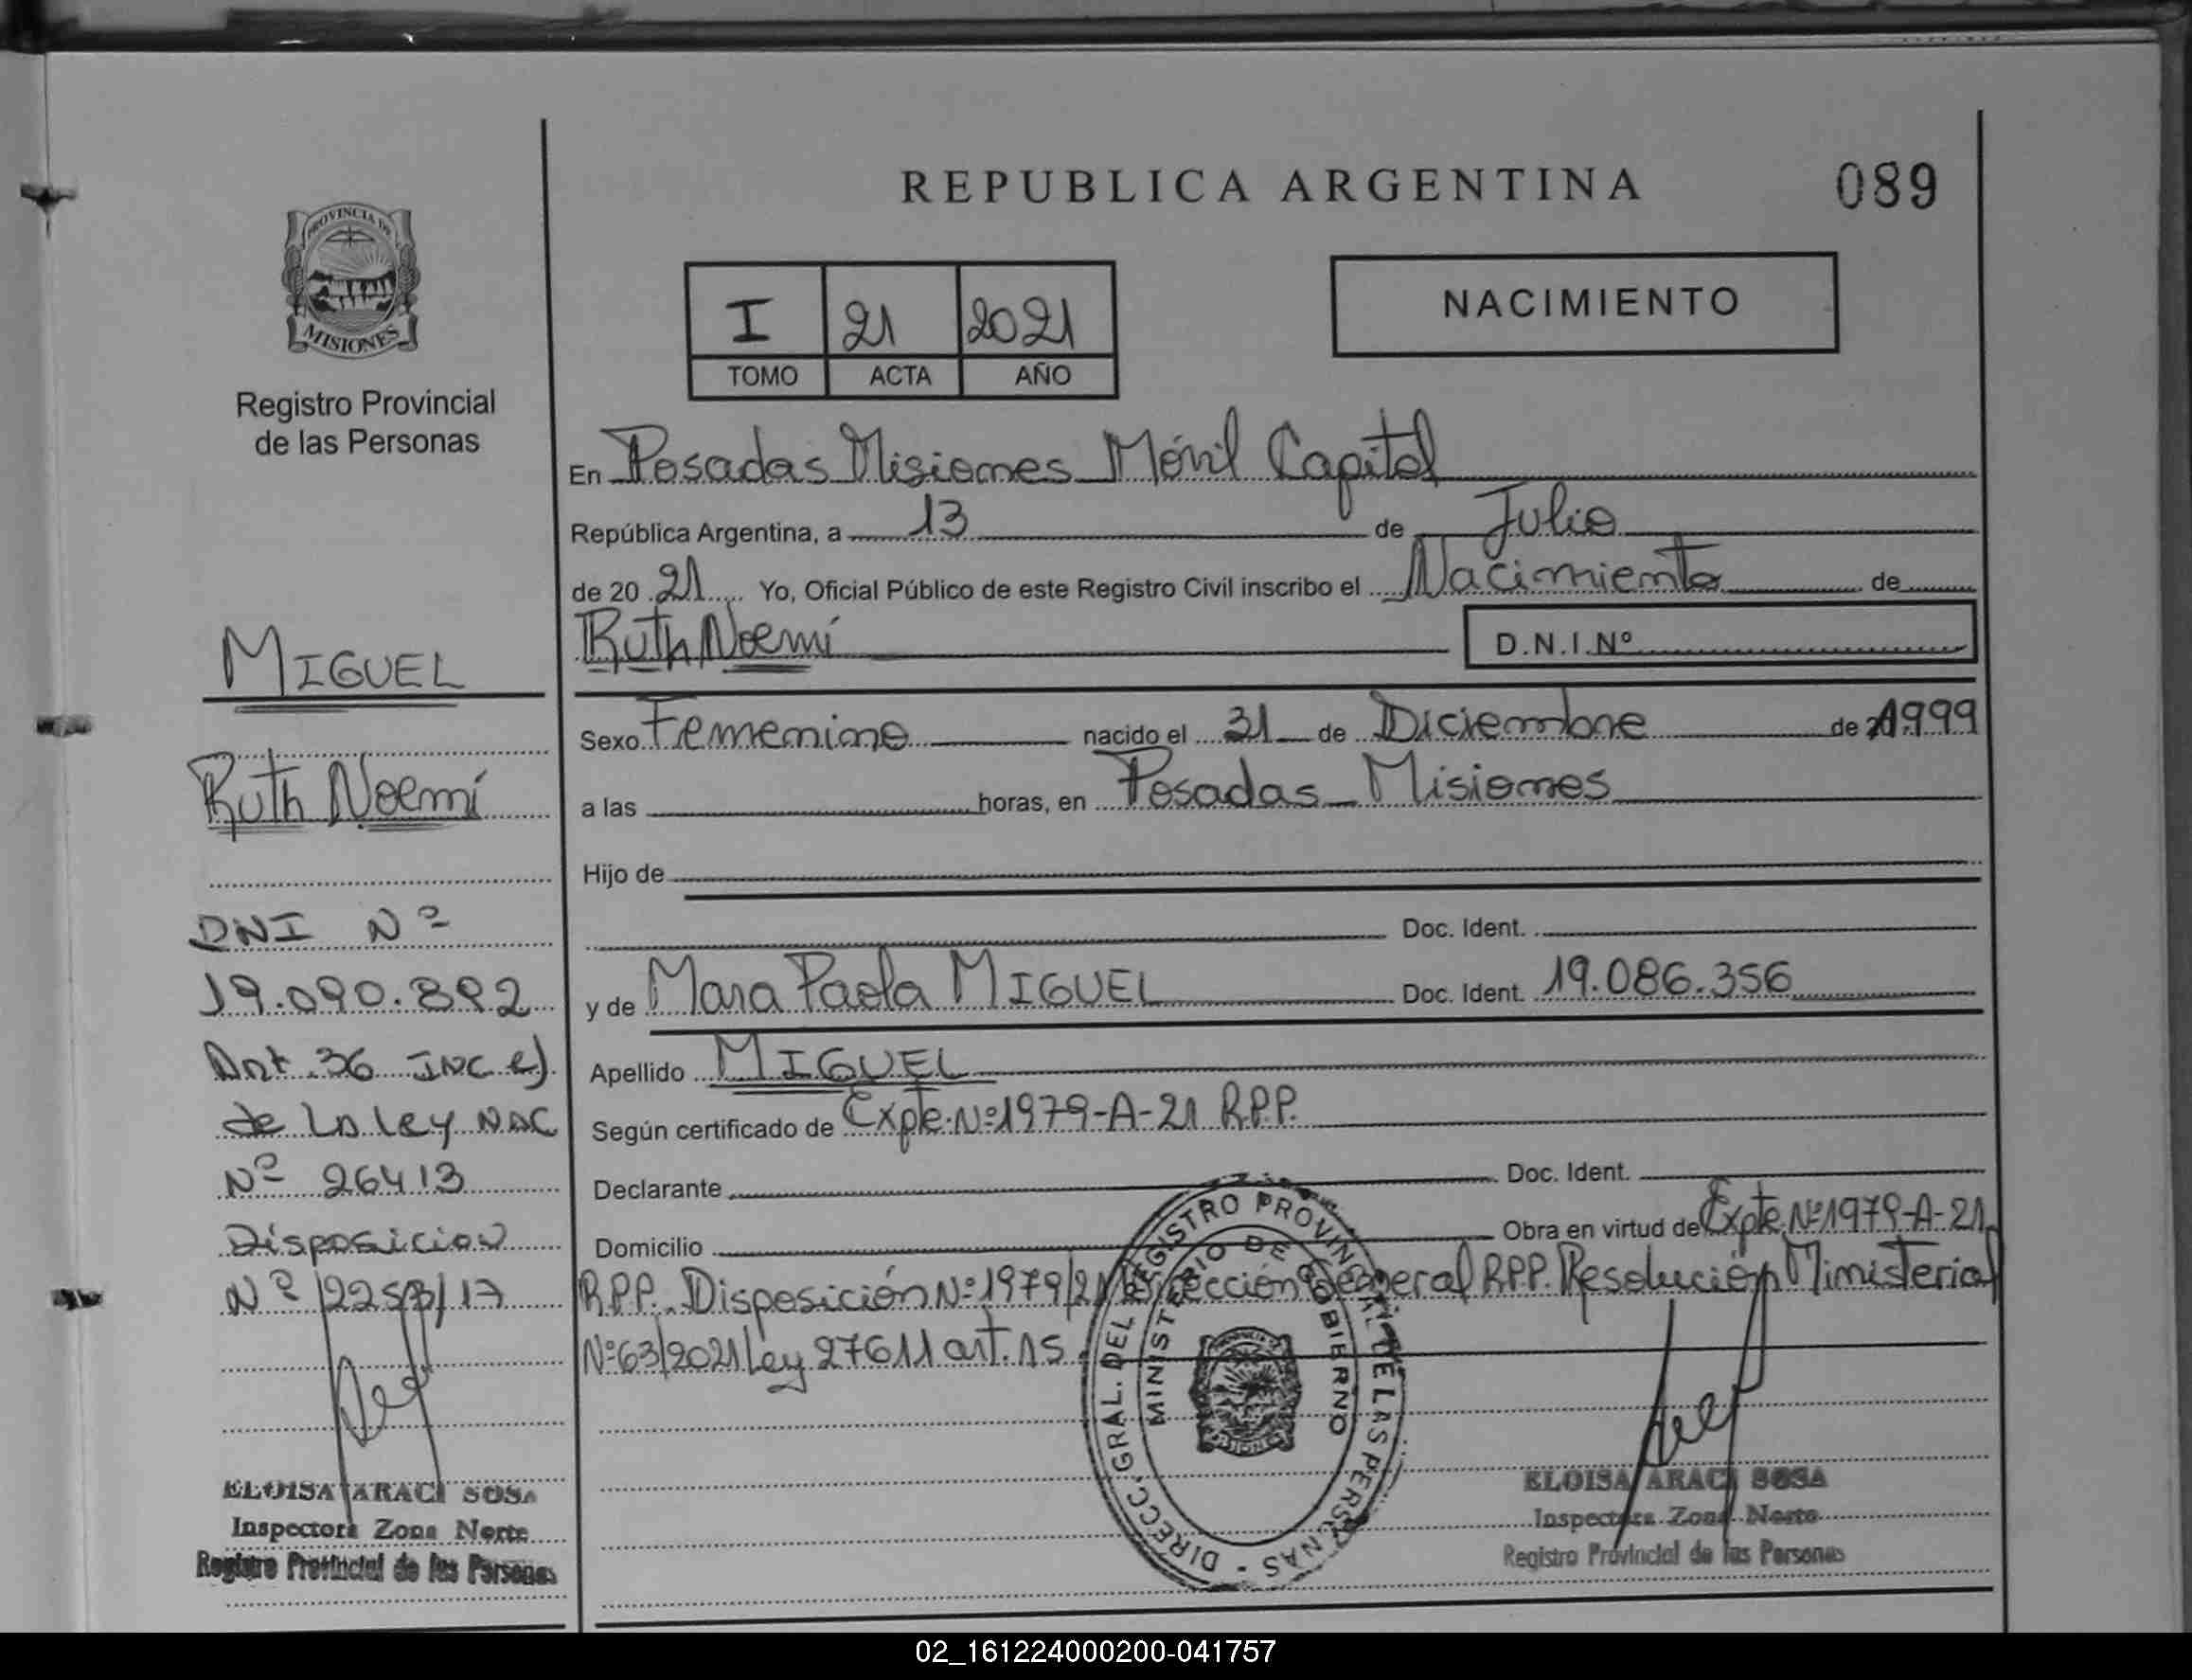 REPUBLICA ARGENTINA
089
PROVINCIA DE
MISIONES
Registro Provincial
de las Personas
I 21 2021
TOMO ACTA AÑO
NACIMIENTO
En Posadas Misiones Móvil Capital
República Argentina, a 13 de Julio
de 20 21 Yo, Oficial Público de este Registro Civil inscribo el Nacimiento de
Ruth Noemí D.N.I.Nº
Sexo Femenino nacido el 31 de Diciembre de 1999
a las horas, en Posadas Misiones
Hijo de
Doc. Ident.
y de Mara Paola MIGUEL Doc. Ident. 19.086.356
Apellido MIGUEL
Según certificado de Expte. Nº 1979-A-21 R.P.P.
Declarante Doc. Ident.
Domicilio Obra en virtud de Expte. Nº 1979-A-21
R.P.P. Disposición Nº 1979/21 Dirección General R.P.P. Resolución Ministerial
Nº 63/2021 Ley 27611 art. 15.
MIGUEL
Ruth Noemí
DNI Nº
19.090.892
Art. 36 INC e)
de LA Ley NAC
Nº 26413
Disposicion
Nº
ELOISA ARACI SOSA
Inspectora Zona Norte
Registro Provincial de las Personas
DIRECC. GRAL. DEL REGISTRO PROVINCIAL DE LAS PERSONAS -
MINISTERIO DE GOBIERNO
ELOISA ARACI SOSA
Inspectora Zona Norte
Registro Provincial de las Personas
02_161224000200-041757